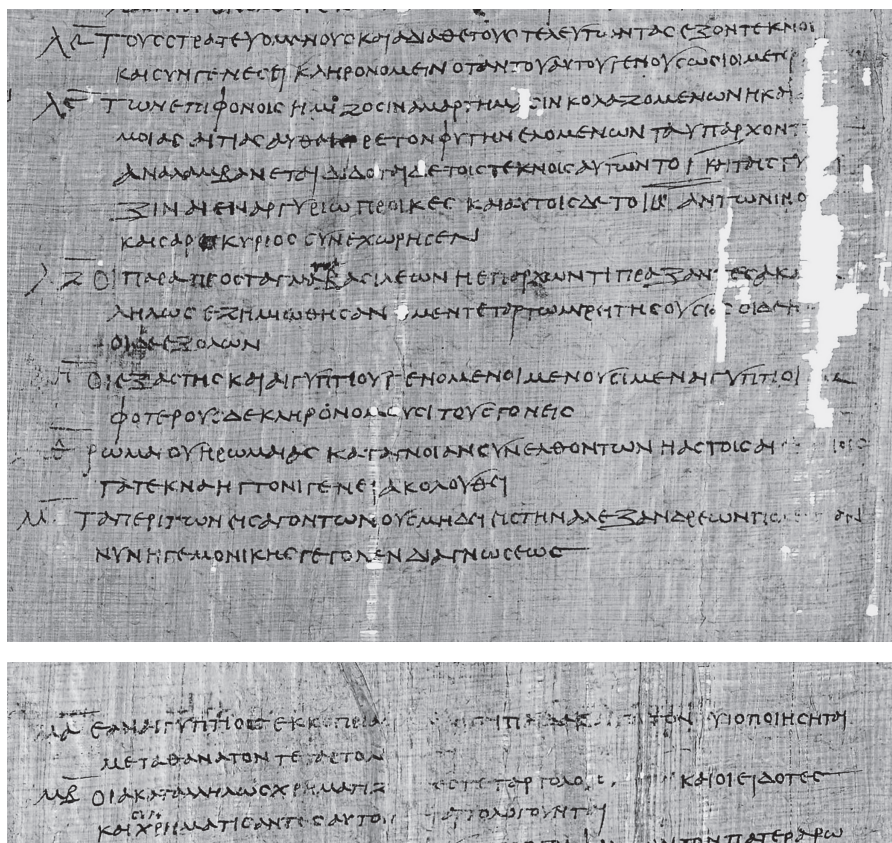 ΛΕ ΤΟΥΣ ΣΤΡΑΤΕΥΟΜΕΝΟΥΣ ΚΑΙ ΑΔΙΑΘΕΤΟΥΣ ΤΕΛΕΥΤΩΝΤΑΣ ΕΞΟΝ ΤΕΚΝΟΙ
ΚΑΙ ΣΥΝΓΕΝΕΣΕΙ ΚΛΗΡΟΝΟΜΕΙΝ ΟΤΑΝ ΤΟΥ ΑΥΤΟΥ ΓΕΝΟΥΣ ΩΣΙ ΟΙ ΜΕΤΕΡ
ΛϚ ΤΩΝ ΕΠΙ ΦΟΝΟΙΣ Η ΜΙΖΟΣΙΝ ΑΜΑΡΤΗΜΑΣΙΝ ΚΟΛΑΖΟΜΕΝΩΝ Η ΚΑΙ
ΜΟΙΑΣ ΑΙΤΙΑΣ ΑΥΘΑΙΡΕΤΟΝ ΦΥΓΗΝ ΕΛΟΜΕΝΩΝ ΤΑ ΥΠΑΡΧΟΝΤ
ΑΝΑΛΑΜΒΑΝΕΤΑΙ ΔΙΔΟΤΑΙ ΔΕ ΤΟΙΣ ΤΕΚΝΟΙΣ ΑΥΤΩΝ ΤΟ Ι ΚΑΙ ΤΑΙΣ ΓΥ
ΞΙΝ ΑΙ ΕΝ ΑΡΓΥΡΙΩ ΠΡΟΙΚΕΣ ΚΑΙ ΑΥΤΟΙΣ ΔΕ ΤΟ ΙΒ ΑΝΤΩΝΙΝΟ
ΚΑΙΣΑΡ Ο ΚΥΡΙΟΣ ΣΥΝΕΧΩΡΗΣΕΝ
ΛΖ ΟΙ ΠΑΡΑ ΠΡΟΣΤΑΓΜΑΤΑ ΒΑΣΙΛΕΩΝ Η ΕΠΑΡΧΩΝ ΤΙ ΠΡΑΞΑΝΤΕΣ ΑΚΑ
ΛΗΛΩΣ ΕΖΗΜΙΩΘΗΣΑΝ Ο ΜΕΝ ΤΕΤΑΡΤΩ ΜΕΡΙ ΤΗΣ ΟΥΣΙΑΣ ΟΙ ΔΕ Η
ΟΙ ΔΕ ΕΞ ΟΛΩΝ
ΛΗ ΟΙ ΕΞ ΑΣΤΗΣ ΚΑΙ ΑΙΓΥΠΤΙΟΥ ΓΕΝΟΜΕΝΟΙ ΜΕΝΟΥΣΙ ΜΕΝ ΑΙΓΥΠΤΙΟΙ
ΦΟΤΕΡΟΥΣ ΔΕ ΚΛΗΡΟΝΟΜΟΥΣΙ ΤΟΥΣ ΓΟΝΕΙΣ
ΛΘ ΡΩΜΑΙΟΥ Η ΡΩΜΑΙΑΣ ΚΑΤ ΑΓΝΟΙΑΝ ΣΥΝΕΛΘΟΝΤΩΝ Η ΑΣΤΟΙΣ ΑΙ
ΤΑ ΤΕΚΝΑ ΗΤΤΟΝΙ ΓΕΝΕΙ ΑΚΟΛΟΥΘΕΙ
Μ ΤΑ ΠΕΡΙ ΤΩΝ ΕΙΣΑΓΟΝΤΩΝ ΟΥΣ ΜΗ ΔΕΙ ΕΙΣ ΤΗΝ ΑΛΕΞΑΝΔΡΕΩΝ
ΝΥΝ ΗΓΕΜΟΝΙΚΗΣ ΓΕΓΟΝΕΝ ΔΙΑΓΝΩΣΕΩΣ
ΜΑ ΕΑΝ ΑΙΓΥΠΤΙΟΣ ΕΚ ΚΟΠΡΙΑ ΠΑΙΔΑ ΚΑΙ ΤΟΥΤΟΝ ΥΙΟΠΟΙΗΣΗΤΑΙ
ΜΕΤΑ ΘΑΝΑΤΟΝ ΤΕΤΑΡΤΟΛ
ΜΒ ΟΙ ΑΚΑΤΑΛΛΗΛΩΣ ΧΡΗΜΑΤΙΖ ΤΕΤΑΡΤΟΛΟ ΚΑΙ ΟΙ ΕΙΔΟΤΕΣ
ΚΑΙ ΣΥΝΧΡΗΜΑΤΙΣΑΝΤΕΣ ΑΥΤΟΙ ΤΟΛΟΓΟΥΝΤΑΙ